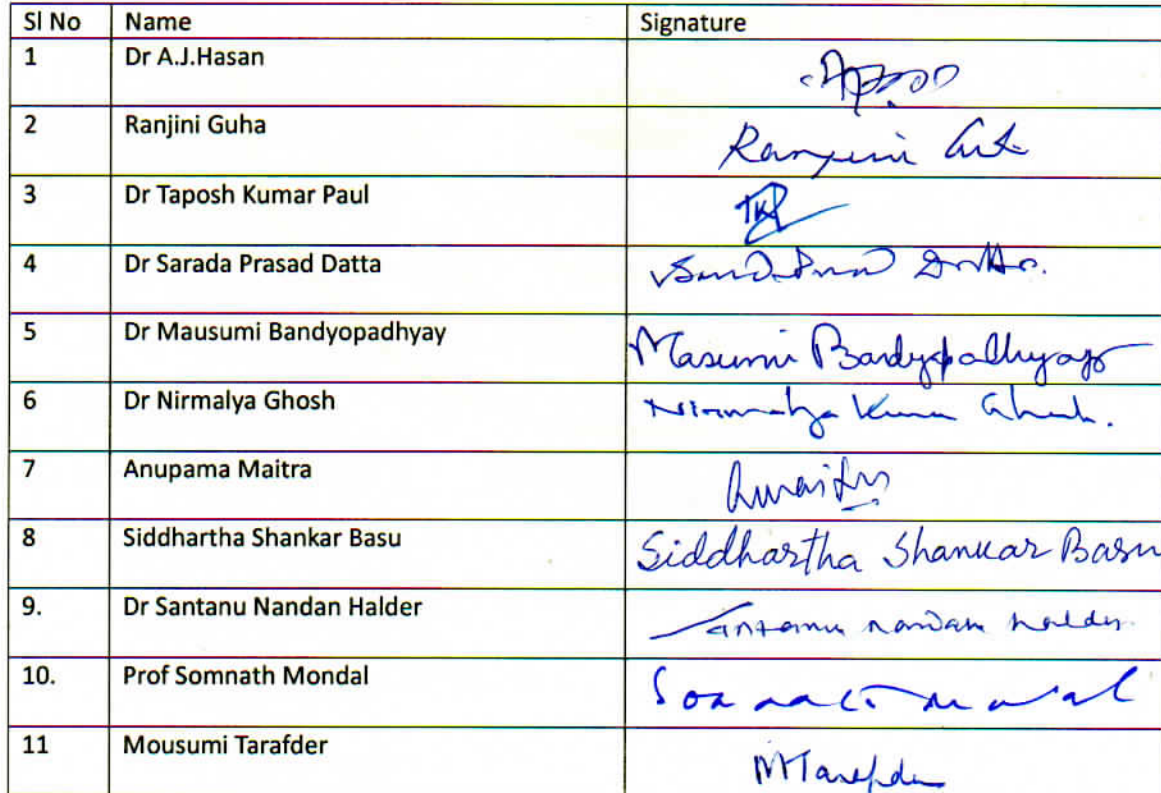 Sl No Name Signature
1 Dr A.J.Hasan
2 Ranjini Guha Ranjini
3 Dr Taposh Kumar Paul TKP
4 Dr Sarada Prasad Datta
5 Dr Mausumi Bandyopadhyay Masumi Bandyopadhyay
6 Dr Nirmalya Ghosh Nirmalya Kumar Ghosh.
7 Anupama Maitra AMaitra
8 Siddhartha Shankar Basu Siddhartha Shankar Basu
9. Dr Santanu Nandan Halder Santanu Nandan Halder
10. Prof Somnath Mondal Somnath Mondal
11 Mousumi Tarafder MTarafder